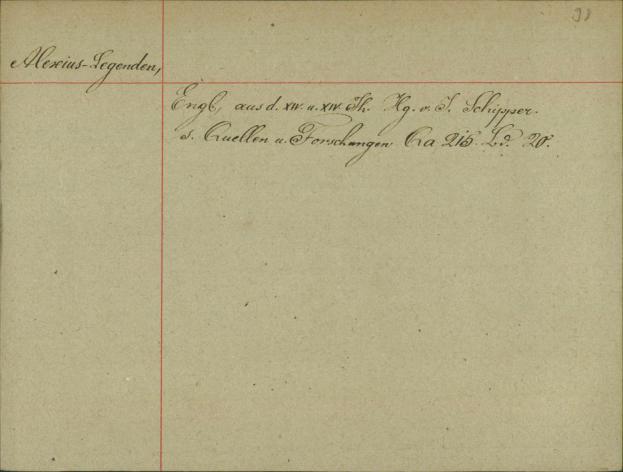 Alexius-Legenden,
Engl, aus d. XIV. u. XIV. Jh. Hg. v. J. Schipper.
s. Quellen u. Forschungen Qa 215. Bd. 20.